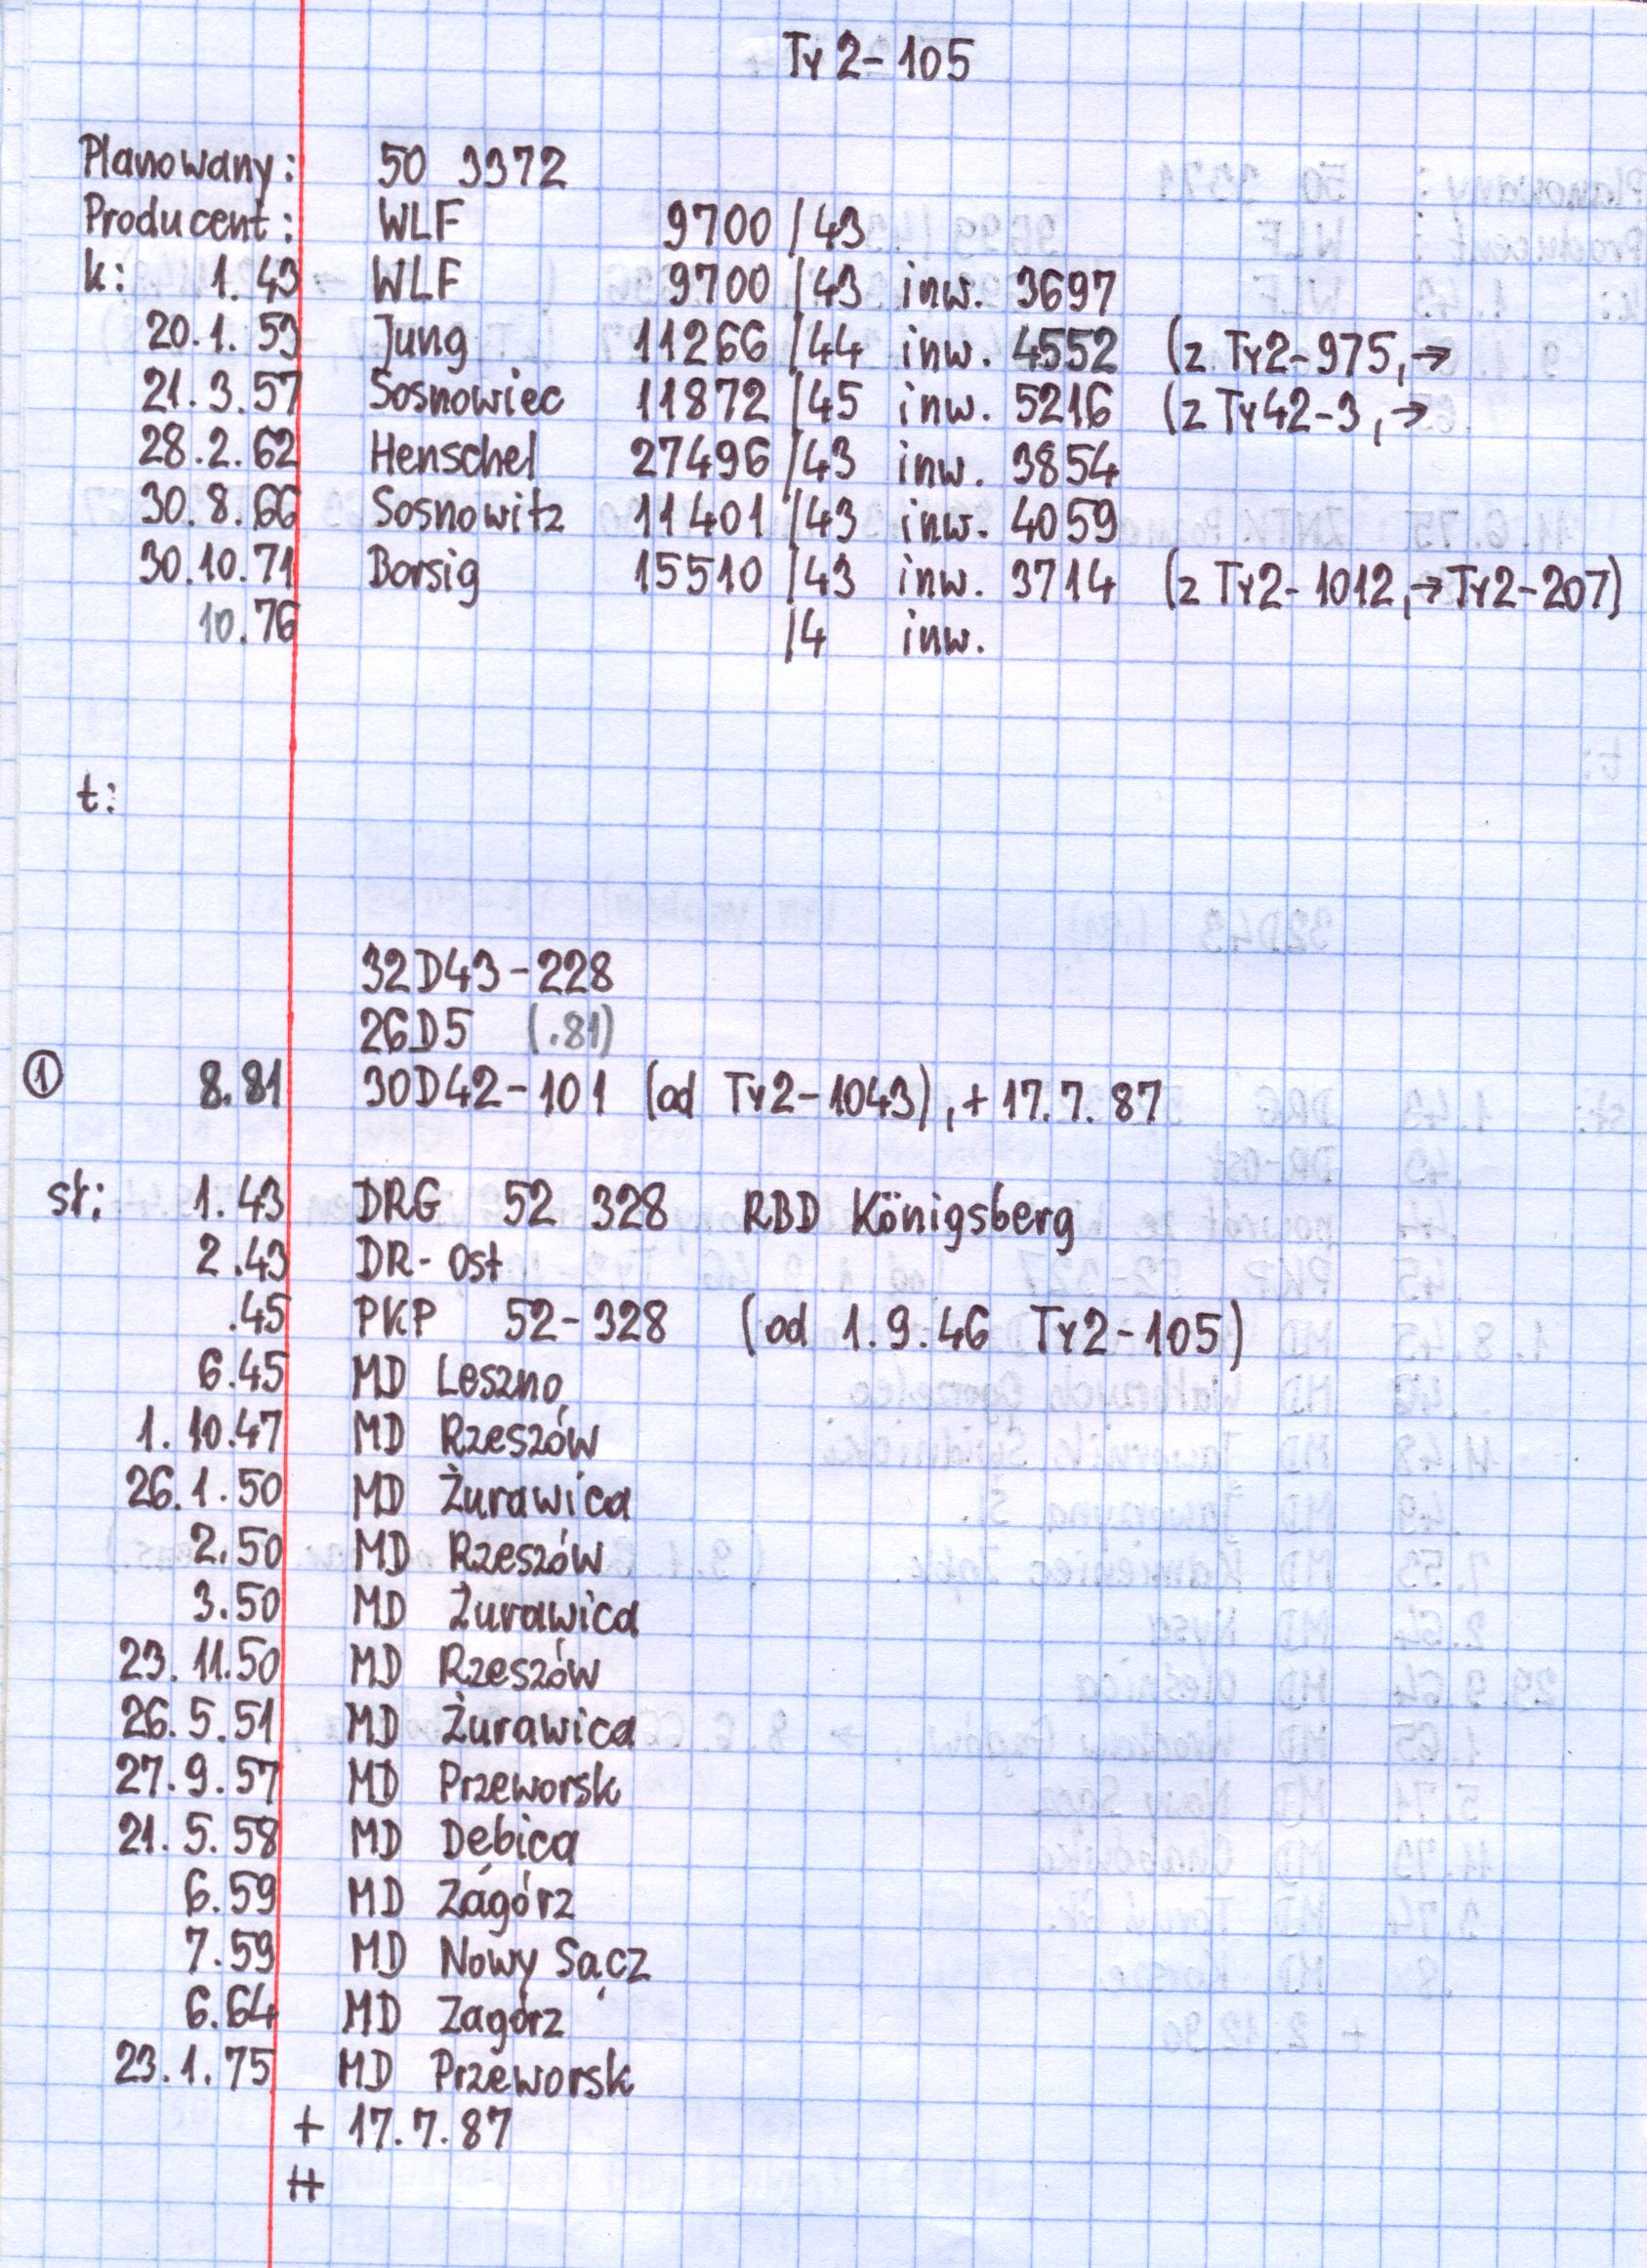 Ty2-105
Planowany: 50 3372
Producent: WLF 9700/43
k: 1.43 WLF 9700/43 inw. 3697
20.1.53 Jung 11266/44 inw. 4552 (z Ty2-975,→
21.3.57 Sosnowiec 11872/45 inw. 5216 (z Ty42-3,→
28.2.62 Henschel 27496/43 inw. 3854
30.8.66 Sosnowitz 11401/43 inw. 4059
30.10.71 Borsig 15510/43 inw. 3714 (z Ty2-1012,→Ty2-207)
10.76 /4 inw.
t:
32D43-228
26D5 (.81)
① 8.81 30D42-101 (od Ty2-1043), +17.7.87
st: 1.43 DRG 52 328 RBD Königsberg
2.43 DR-Ost
.45 PKP 52-328 (od 1.9.46 Ty2-105)
6.45 MD Leszno
1.10.47 MD Rzeszów
26.1.50 MD Żurawica
2.50 MD Rzeszów
3.50 MD Żurawica
23.11.50 MD Rzeszów
26.5.51 MD Żurawica
27.9.57 MD Przeworsk
21.5.58 MD Dębica
6.59 MD Zagórz
7.59 MD Nowy Sącz
6.64 MD Zagórz
23.1.75 MD Przeworsk
+ 17.7.87
++